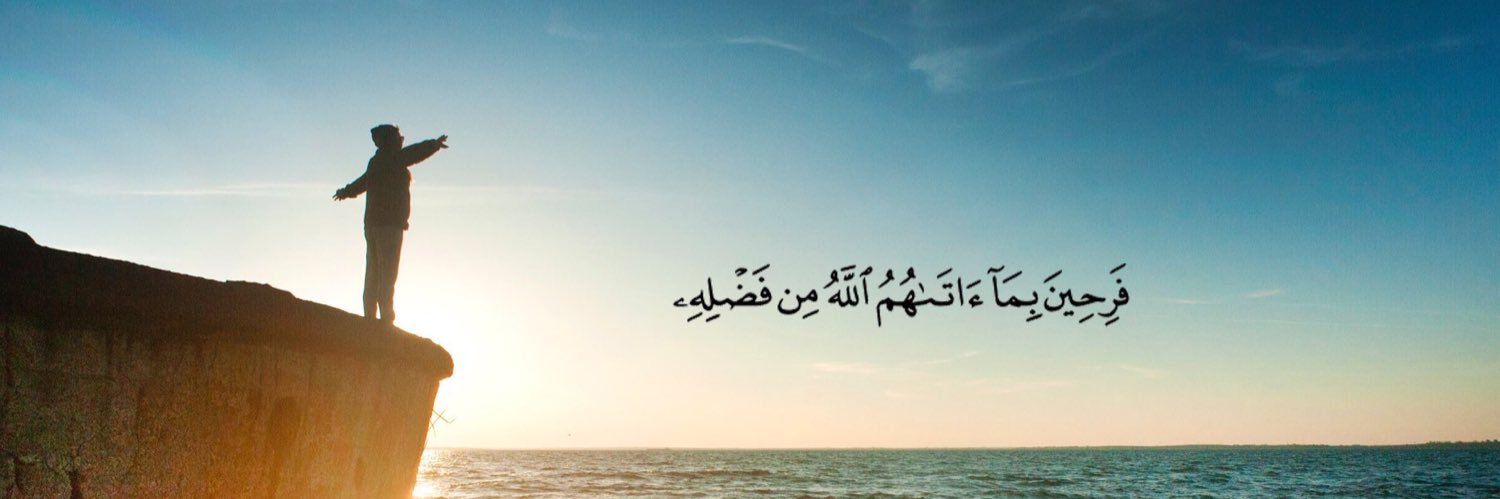 فَرِحِينَ بِمَآ ءَاتَىٰهُمُ ٱللَّهُ مِن فَضْلِهِۦ